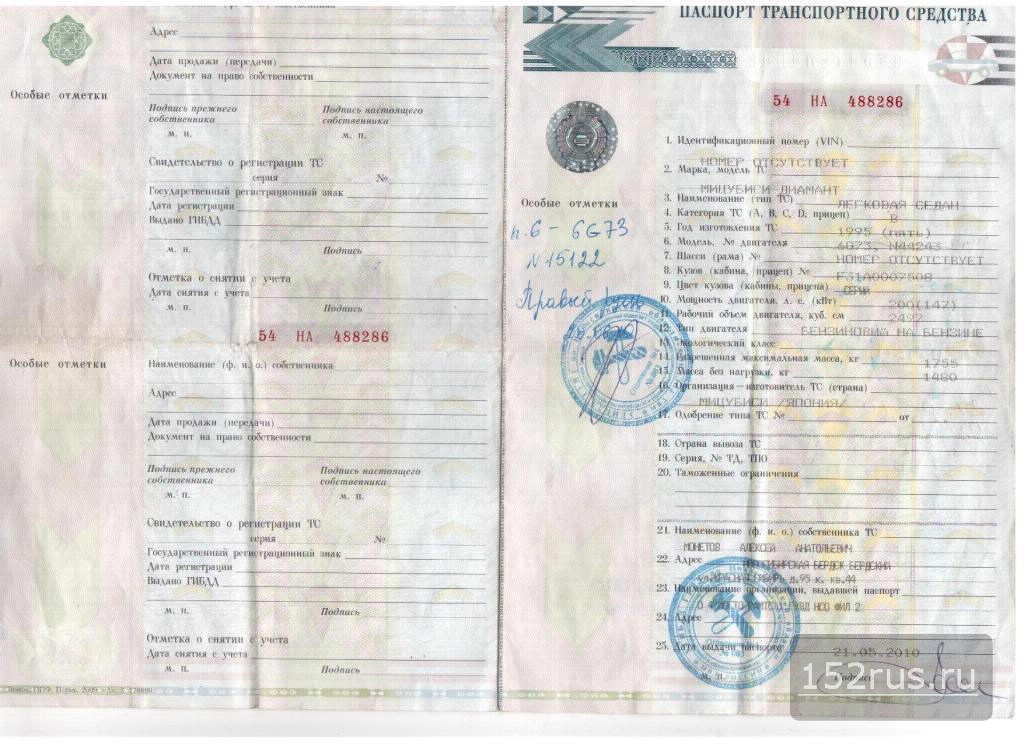 Адрес
Дата продажи (передачи)
Документ на право собственности
Особые отметки
Подпись прежнего собственника
Подпись настоящего собственника
м. п.
м. п.
Свидетельство о регистрации ТС
серия №
Государственный регистрационный знак
Дата регистрации
Выдано ГИБДД
м. п. Подпись
Отметка о снятии с учета
Дата снятия с учета
м. п. Подпись
54 НА 488286
Особые отметки
Наименование (ф. и. о.) собственника
Адрес
Дата продажи (передачи)
Документ на право собственности
Подпись прежнего собственника
Подпись настоящего собственника
м. п.
м. п.
Свидетельство о регистрации ТС
серия №
Государственный регистрационный знак
Дата регистрации
Выдано ГИБДД
м. п. Подпись
Отметка о снятии с учета
Дата снятия с учета
м. п. Подпись
ПАСПОРТ ТРАНСПОРТНОГО СРЕДСТВА
54 НА 488286
Особые отметки
п.6 - 6G73
N 15122
Правый руль
1. Идентификационный номер (VIN)
НОМЕР ОТСУТСТВУЕТ
2. Марка, модель ТС
МИЦУБИСИ ДИАМАНТ
3. Наименование (тип ТС) ЛЕГКОВАЯ СЕДАН
4. Категория ТС (А, В, С, D, прицеп) В
5. Год изготовления ТС 1995 (пять)
6. Модель, № двигателя 6G73, N44243
7. Шасси (рама) № НОМЕР ОТСУТСТВУЕТ
8. Кузов (кабина, прицеп) № F31A0007508
9. Цвет кузова (кабины, прицепа) СЕРЫЙ
10. Мощность двигателя, л. с. (кВт) 200(147)
11. Рабочий объем двигателя, куб. см 2497
12. Тип двигателя БЕНЗИНОВЫЙ НА БЕНЗИНЕ
13. Экологический класс
14. Разрешенная максимальная масса, кг 1755
15. Масса без нагрузки, кг 1480
16. Организация—изготовитель ТС (страна)
МИЦУБИСИ /ЯПОНИЯ/
17. Одобрение типа ТС № от
18. Страна вывоза ТС
19. Серия, № ТД, ТПО
20. Таможенные ограничения
21. Наименование (ф. и. о.) собственника ТС
МОНЕТОВ АЛЕКСЕЙ АНАТОЛЬЕВИЧ
22. Адрес СИБИРСКАЯ БЕРДСК БЕРДСКИЙ
д.95 к. кв.44
23. Наименование организации, выдавшей паспорт
НСО ФИЛ 2
24. Адрес
25. Дата выдачи паспорта 21.05.2010
м. п. Подпись
152rus.ru